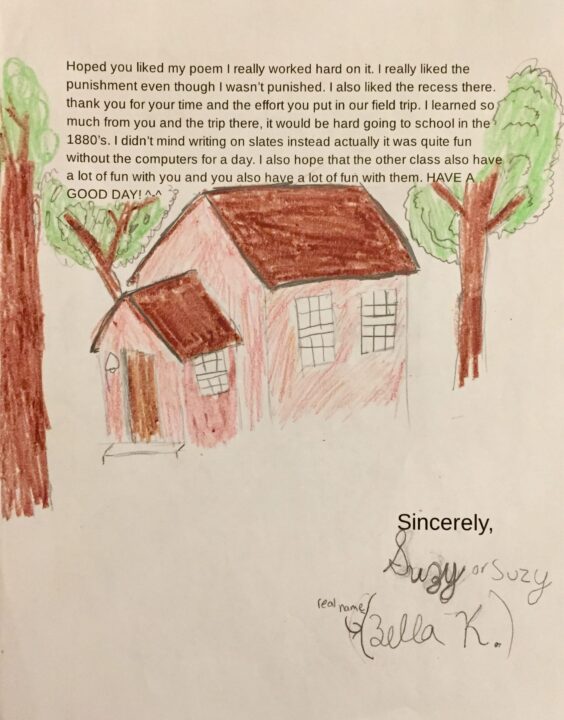 Hoped you liked my poem I really worked hard on it. I really liked the
punishment even though I wasn't punished. I also liked the recess there.
thank you for your time and the effort you put in our field trip. I learned so
much from you and the trip there, it would be hard going to school in the
1880's. I didn't mind writing on slates instead actually it was quite fun
without the computers for a day. I also hope that the other class also have
a lot of fun with you and you also have a lot of fun with them. HAVE A
GOOD DAY! ^-^
Sincerely,
Suzy or Suzy
real name
(Bella K.)